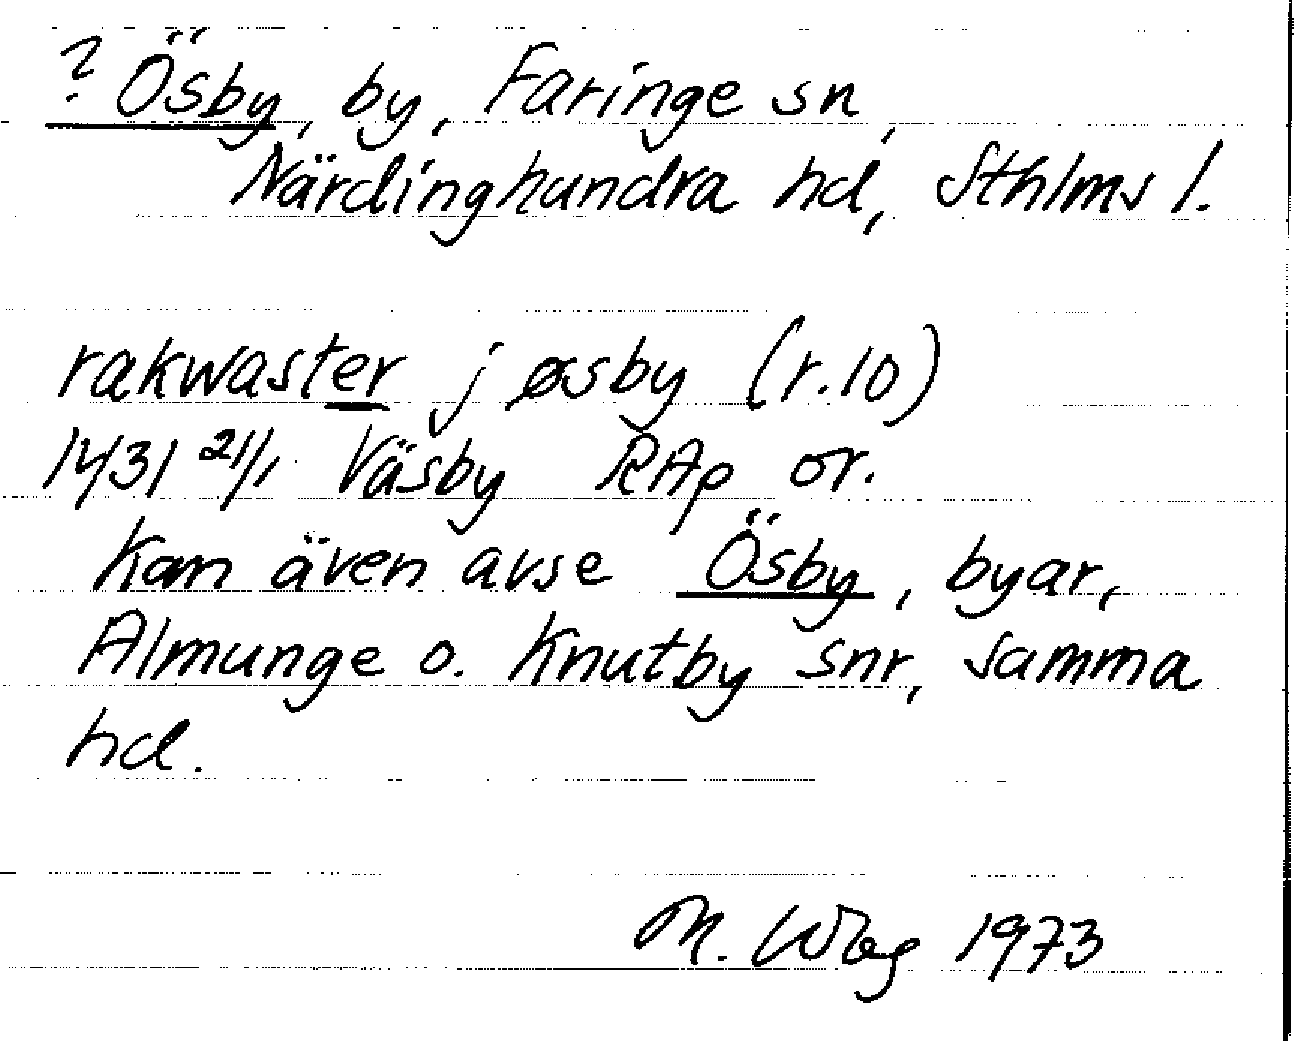 ? Ösby, by, Faringe sn,
Närdinghundra hd, Sthlms l.
rakwaster j øsby (r.10)
1431 21/1 Väsby RAp or.
Kan även avse Ösby, byar,
Almunge o. Knutby snr, samma
hd.
M. 1973